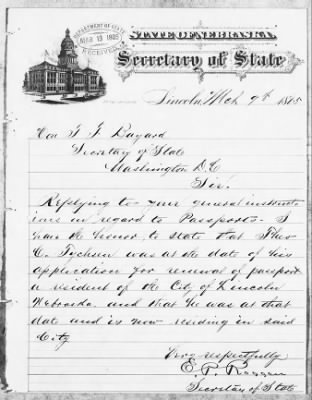 DEPARTMENT OF STATE
MAR 13 1885
RECEIVED
STATE OF NEBRASKA.
Secretary of State
Lincoln, Mch 9th 1885
Hon T. F. Bayard
Secretary of State
Washington D.C
Sir:
Replying to your general instruct
ions in regard to Passports - I
have the honor to state that Theo
C. Tychsen was at the date of his
application for renewal of passport
a resident of the City of Lincoln
Nebraska. and that he was at that
date and is now residing in said
City
Very respectfully
E. P. Roggen
Secretary of State